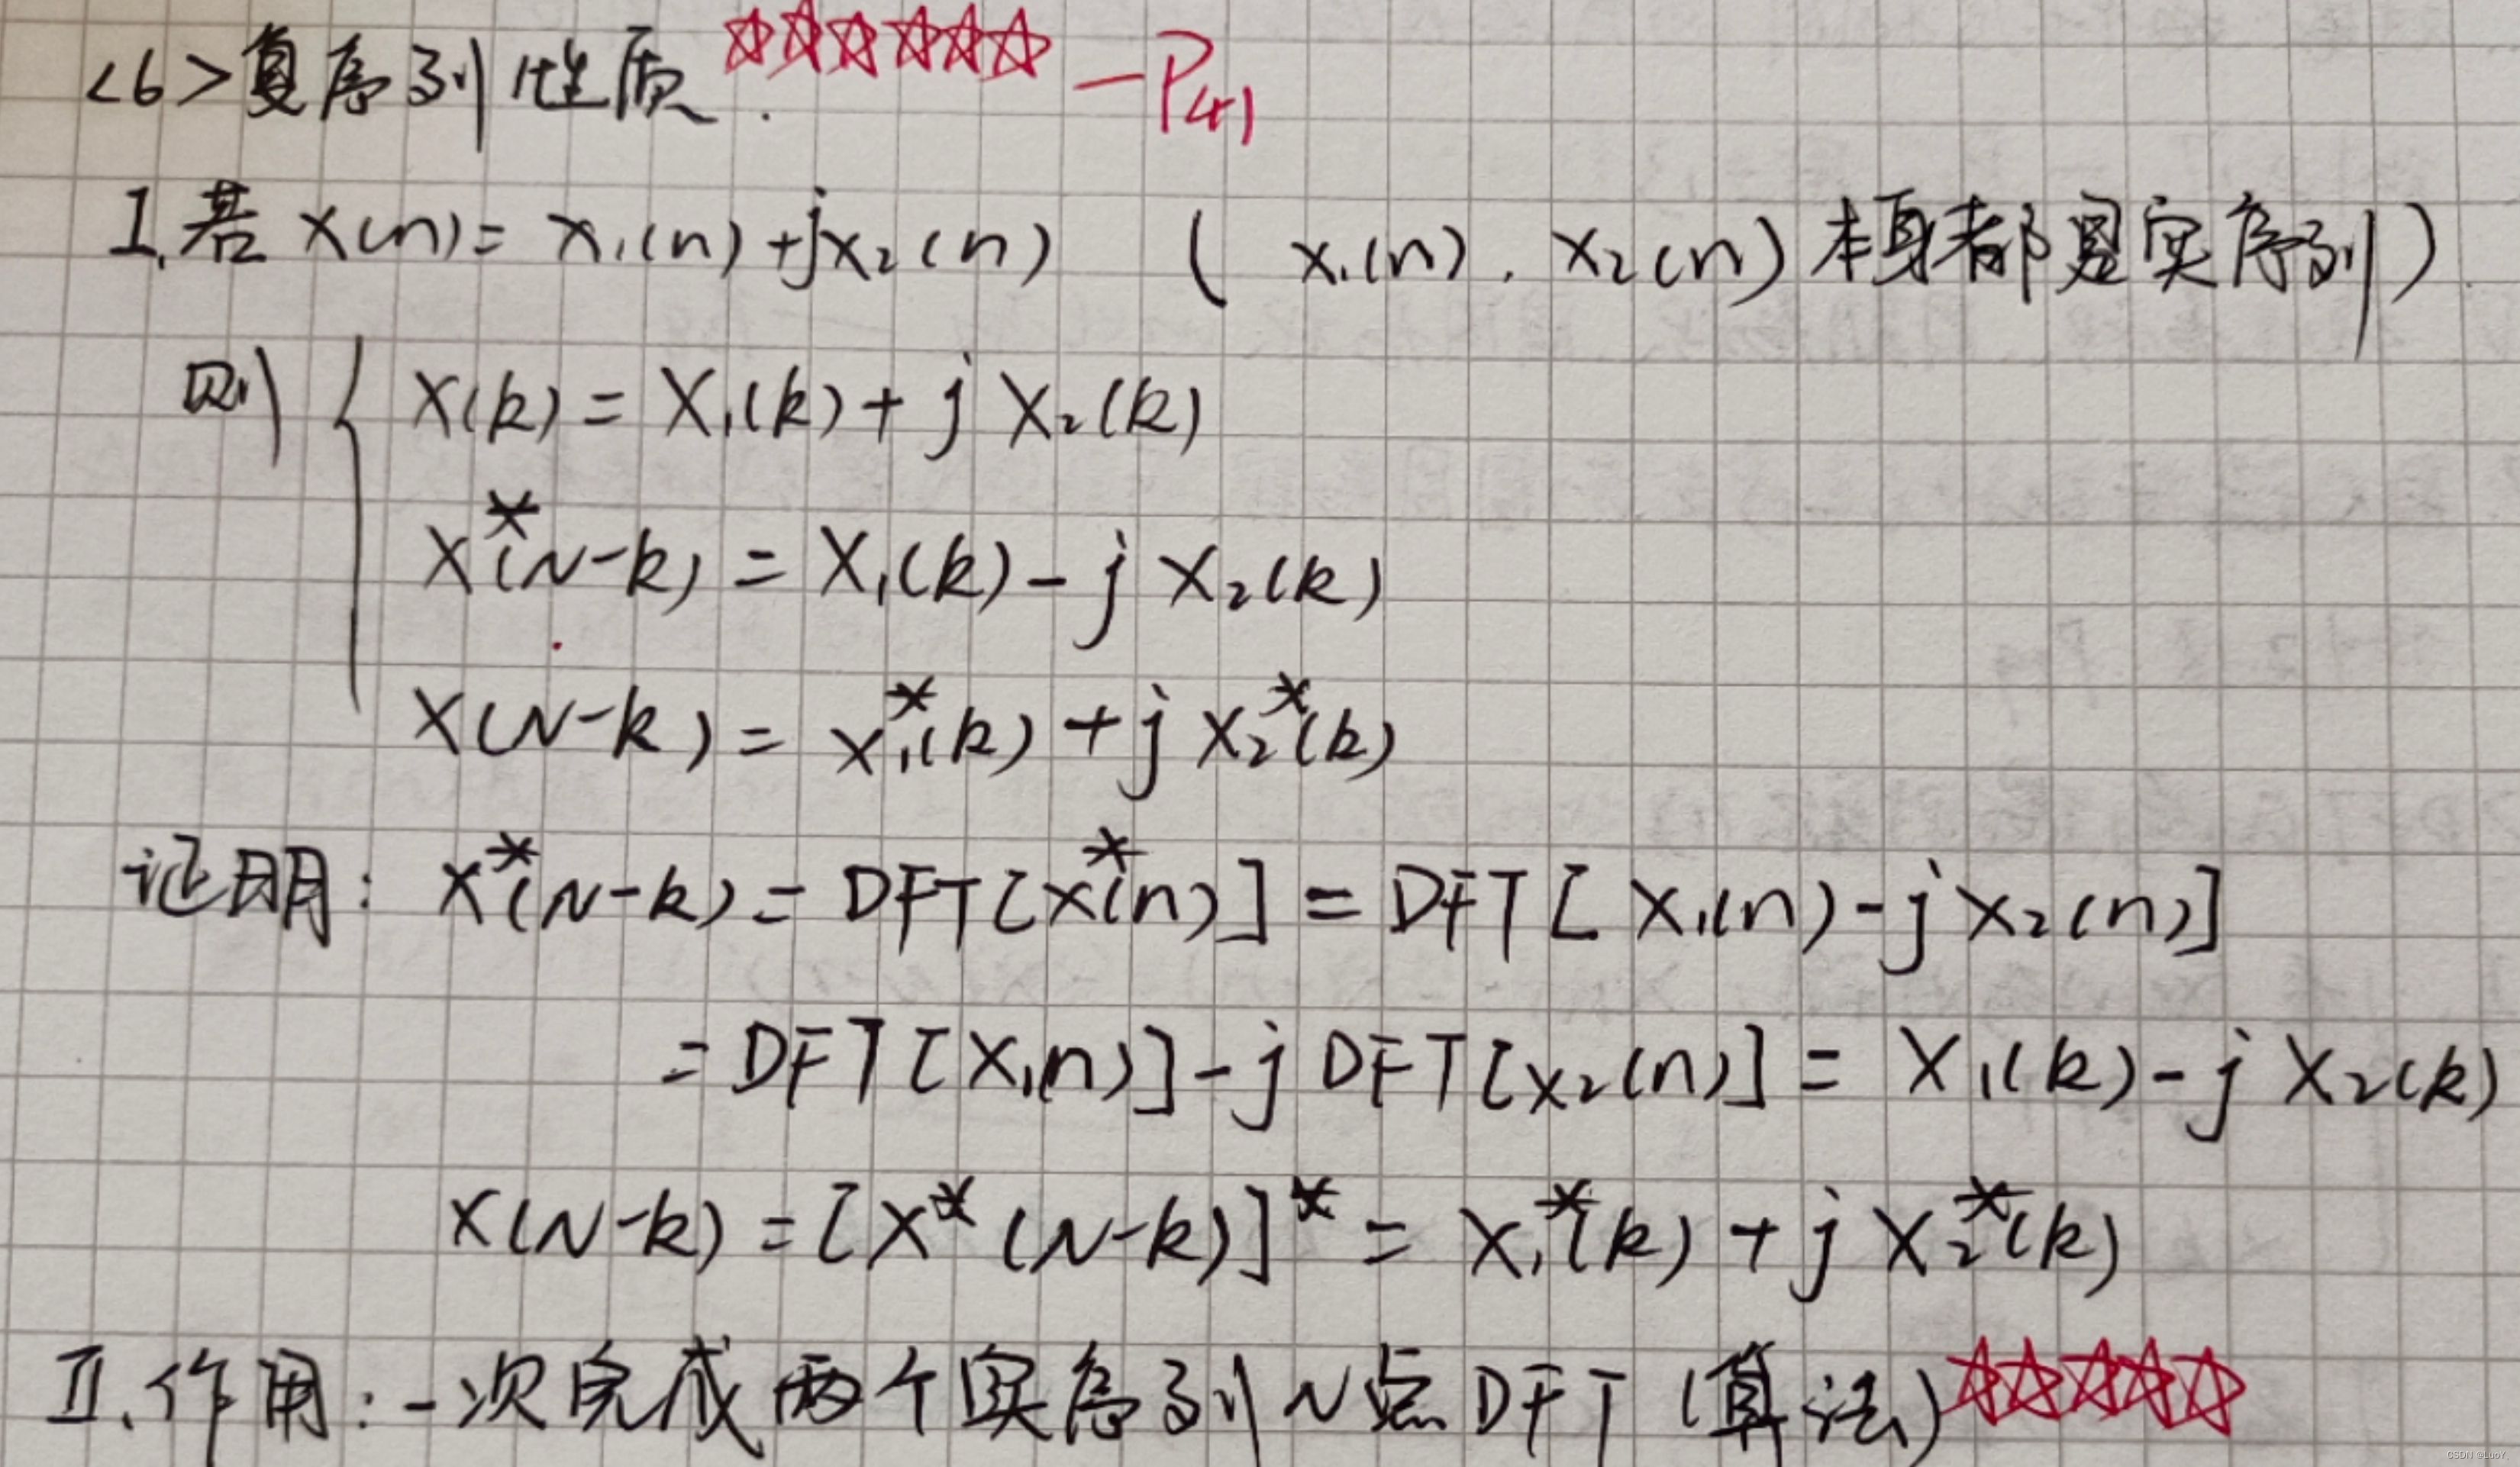 <6>复序列性质. ☆☆☆☆☆☆ —P41
I.若 x(n)= x₁(n)+jx₂(n) ( x₁(n). x₂(n)本身都是实序列)
则{ X(k)= X₁(k)+j X₂(k)
X*(N-k) = X₁(k)-j X₂(k)
X(N-k)= X₁*(k)+j X₂*(k)
证明: X*(N-k)= DFT[x*(n)] = DFT[ x₁(n)-jx₂(n)]
=DFT[x₁n)]-j DFT[x₂(n)] = X₁(k)-j X₂(k)
X(N-k) =[X*(N-k)]* = X₁*(k)+j X₂*(k)
II.作用:一次完成两个实序列N点DFT(算法)☆☆☆☆☆
CSDN @LuoY